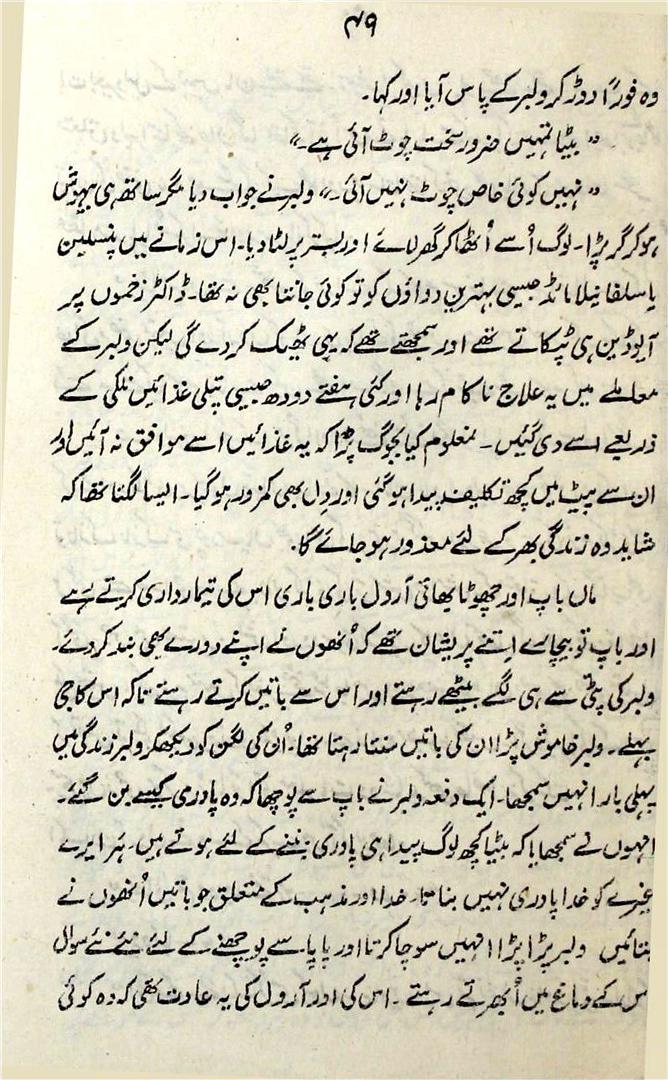 ۴۹
وہ فوراً دوڑ کر ولبر کے پاس آیا اور کہا۔
”بیٹا تمہیں ضرور سخت چوٹ آئی ہے۔“
”نہیں کوئی خاص چوٹ نہیں آئی۔“ ولبر نے جواب دیا مگر ساتھ ہی بیہوش
ہو کر گر پڑا۔ لوگ اُسے اُٹھا کر گھر لائے اور بستر پر لٹا دیا۔ اس زمانے میں پنسلین
یا سلفانیلامائڈ جیسی بہترین دواؤں کو تو کوئی جانتا بھی نہ تھا۔ ڈاکٹر زخموں پر
آیوڈین ہی ٹپکاتے تھے اور سمجھتے تھے کہ یہی ٹھیک کر دے گی لیکن ولبر کے
معاملے میں یہ علاج ناکام رہا اور کئی ہفتے دودھ جیسی پتلی غذائیں نلکی کے
ذریعے اسے دی گئیں۔ نمعلوم کیا بجوگ پڑا کہ یہ غذائیں اسے موافق نہ آئیں اور
ان سے پیٹ میں کچھ تکلیف پیدا ہو گئی اور دل بھی کمزور ہو گیا۔ ایسا لگتا تھا کہ
شاید وہ زندگی بھر کے لئے معذور ہو جائے گا۔
ماں باپ اور چھوٹا بھائی آرول باری باری اس کی تیمارداری کرتے رہے
اور باپ تو بیچارے اتنے پریشان تھے کہ اُنھوں نے اپنے دورے بھی بند کر دئے۔
ولبر کی پٹی سے ہی لگے بیٹھے رہتے اور اس سے باتیں کرتے رہتے تاکہ اس کا جی
بہلے۔ ولبر خاموش پڑا ان کی باتیں سنتا رہتا تھا۔ اُن کی لگن کو دیکھ کر ولبر زندگی میں
پہلی بار انہیں سمجھا۔ ایک دفعہ ولبر نے باپ سے پوچھا کہ وہ پادری کیسے بن گئے۔
انہوں نے سمجھایا کہ بیٹا کچھ لوگ پیدا ہی پادری بننے کے لئے ہوتے ہیں۔ ہر ایرے
غیرے کو خدا پادری نہیں بناتا۔ خدا اور مذہب کے متعلق جو باتیں اُنھوں نے
بتائیں ولبر پڑا پڑا انہیں سوچا کرتا اور پاپا سے پوچھنے کے لئے نئے نئے سوال
اس کے دماغ میں اُبھرتے رہتے۔ اس کی اور آرول کی یہ عادت تھی کہ وہ کوئی